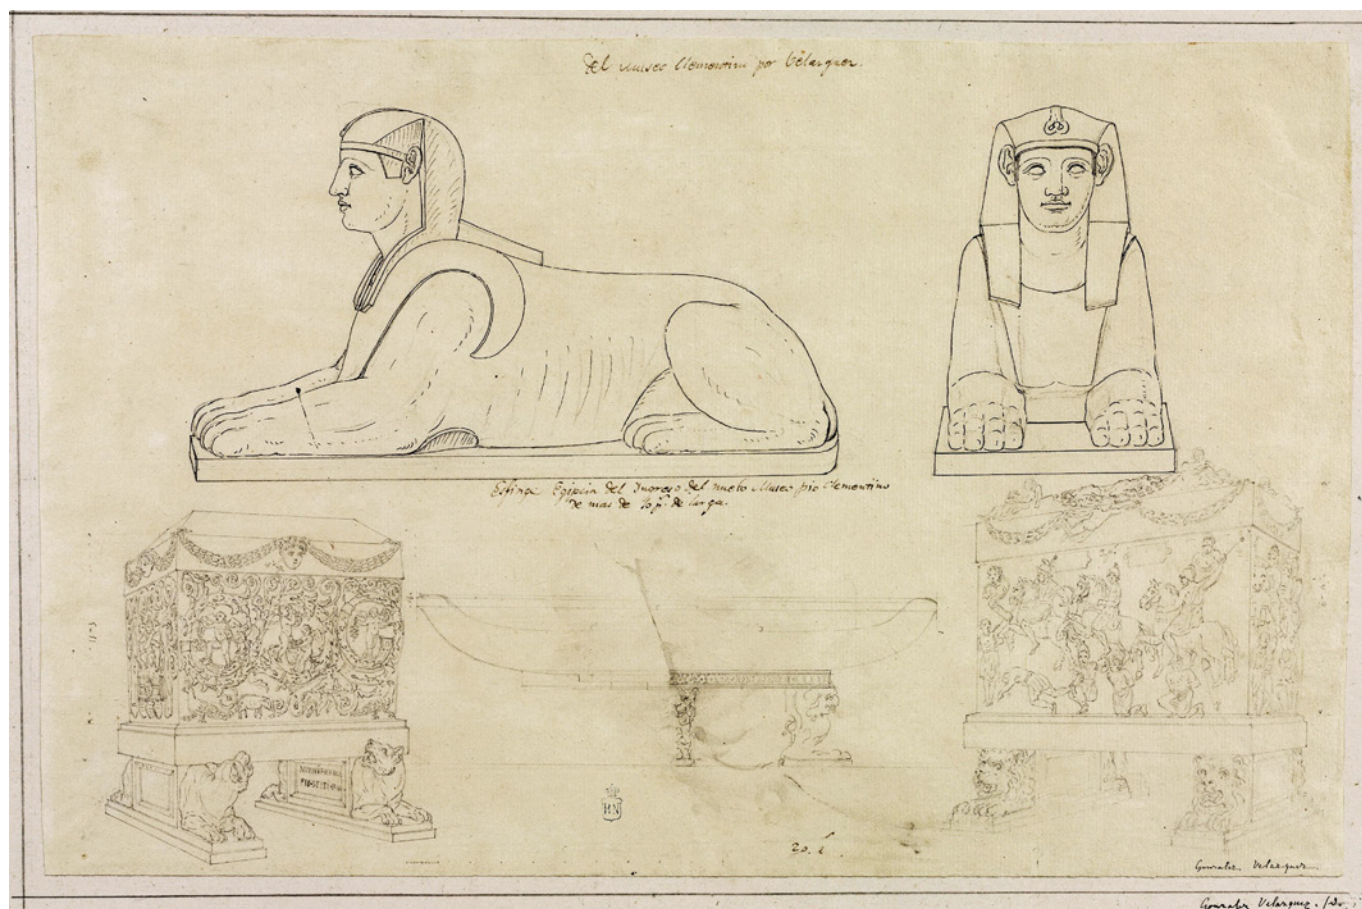 del Museo Clementino por Velazquez.
Esfinge Egipcia del Ingreso del nuebo Museo pio Clementino
de mas de 10 p.s de larga.
HN
20. L
Gonzalez Velazquez
Gonzalez Velazquez.